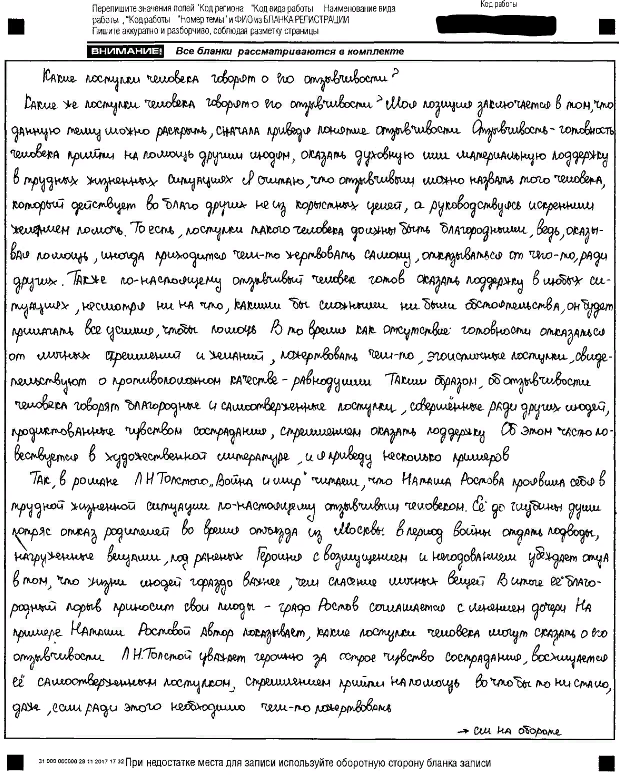 Перепишите значения полей "Код региона "Код вида работы Наименование вида
работы , "Код работы "Номер темы" и ФИО из БЛАНКА РЕГИСТРАЦИИ
Пишите аккуратно и разборчиво, соблюдая разметку страницы
Код работы
Код работы
ВНИМАНИЕ! Все бланки рассматриваются в комплекте
Какие поступки человека говорят о его отзывчивости?
Какие же поступки человека говорят о его отзывчивости? Моя позиция заключается в том, что
данную тему можно раскрыть, сначала приведя понятие отзывчивости Отзывчивость - готовность
человека прийти на помощь другим людям, оказать духовную или материальную поддержку
в трудных жизненных ситуациях Я считаю, что отзывчивым можно назвать того человека,
который действует во благо других не из корыстных целей, а руководствуясь искренним
желанием помочь. То есть, поступки такого человека должны быть благородными, ведь, оказы-
вая помощь, иногда приходится чем-то жертвовать самому, отказываться от чего-то, ради
других. Также по-настоящему отзывчивый человек готов оказать поддержку в любых си-
туациях, несмотря ни на что, какими бы сложными ни были обстоятельства, он будет
прилагать все усилия, чтобы помочь В то время как отсутствие готовности отказаться
от личных стремлений и желаний, пожертвовать чем-то, эгоистичные поступки, свиде-
тельствуют о противоположном качестве - равнодушии Таким образом, об отзывчивости
человека говорят благородные и самоотверженные поступки, совершённые ради других людей,
продиктованные чувством сострадание, стремлением оказать поддержку Об этом часто по-
вествуется в художественной литературе, и я приведу несколько примеров
Так, в романе Л Н Толстого "Война и мир" читаем, что Наташа Ростова проявила себя в
трудной жизненной ситуации по-настоящему отзывчивым человеком. Её до глубины души
потряс отказ родителей во время отъезда из Москвы в период войны отдать подводы,
нагруженные вещами, под раненых Героиня с возмущением и негодованием убеждает отца
в том, что жизни людей гораздо важнее, чем спасение личных вещей В итоге её благо-
родный порыв приносит свои плоды - граф Ростов соглашается с мнением дочери На
примере Наташи Ростовой Автор показывает, какие поступки человека могут сказать о его
отзывчивости Л Н Толстой уважает героиню за острое чувство сострадание, восхищается
её самоотверженным поступком, стремлением прийти на помощь во что бы то ни стало,
даже, если ради этого необходимо чем-то пожертвовать
→ см на обороте
31 000 000000 28 11 2017 17 32 При недостатке места для записи используйте оборотную сторону бланка записи